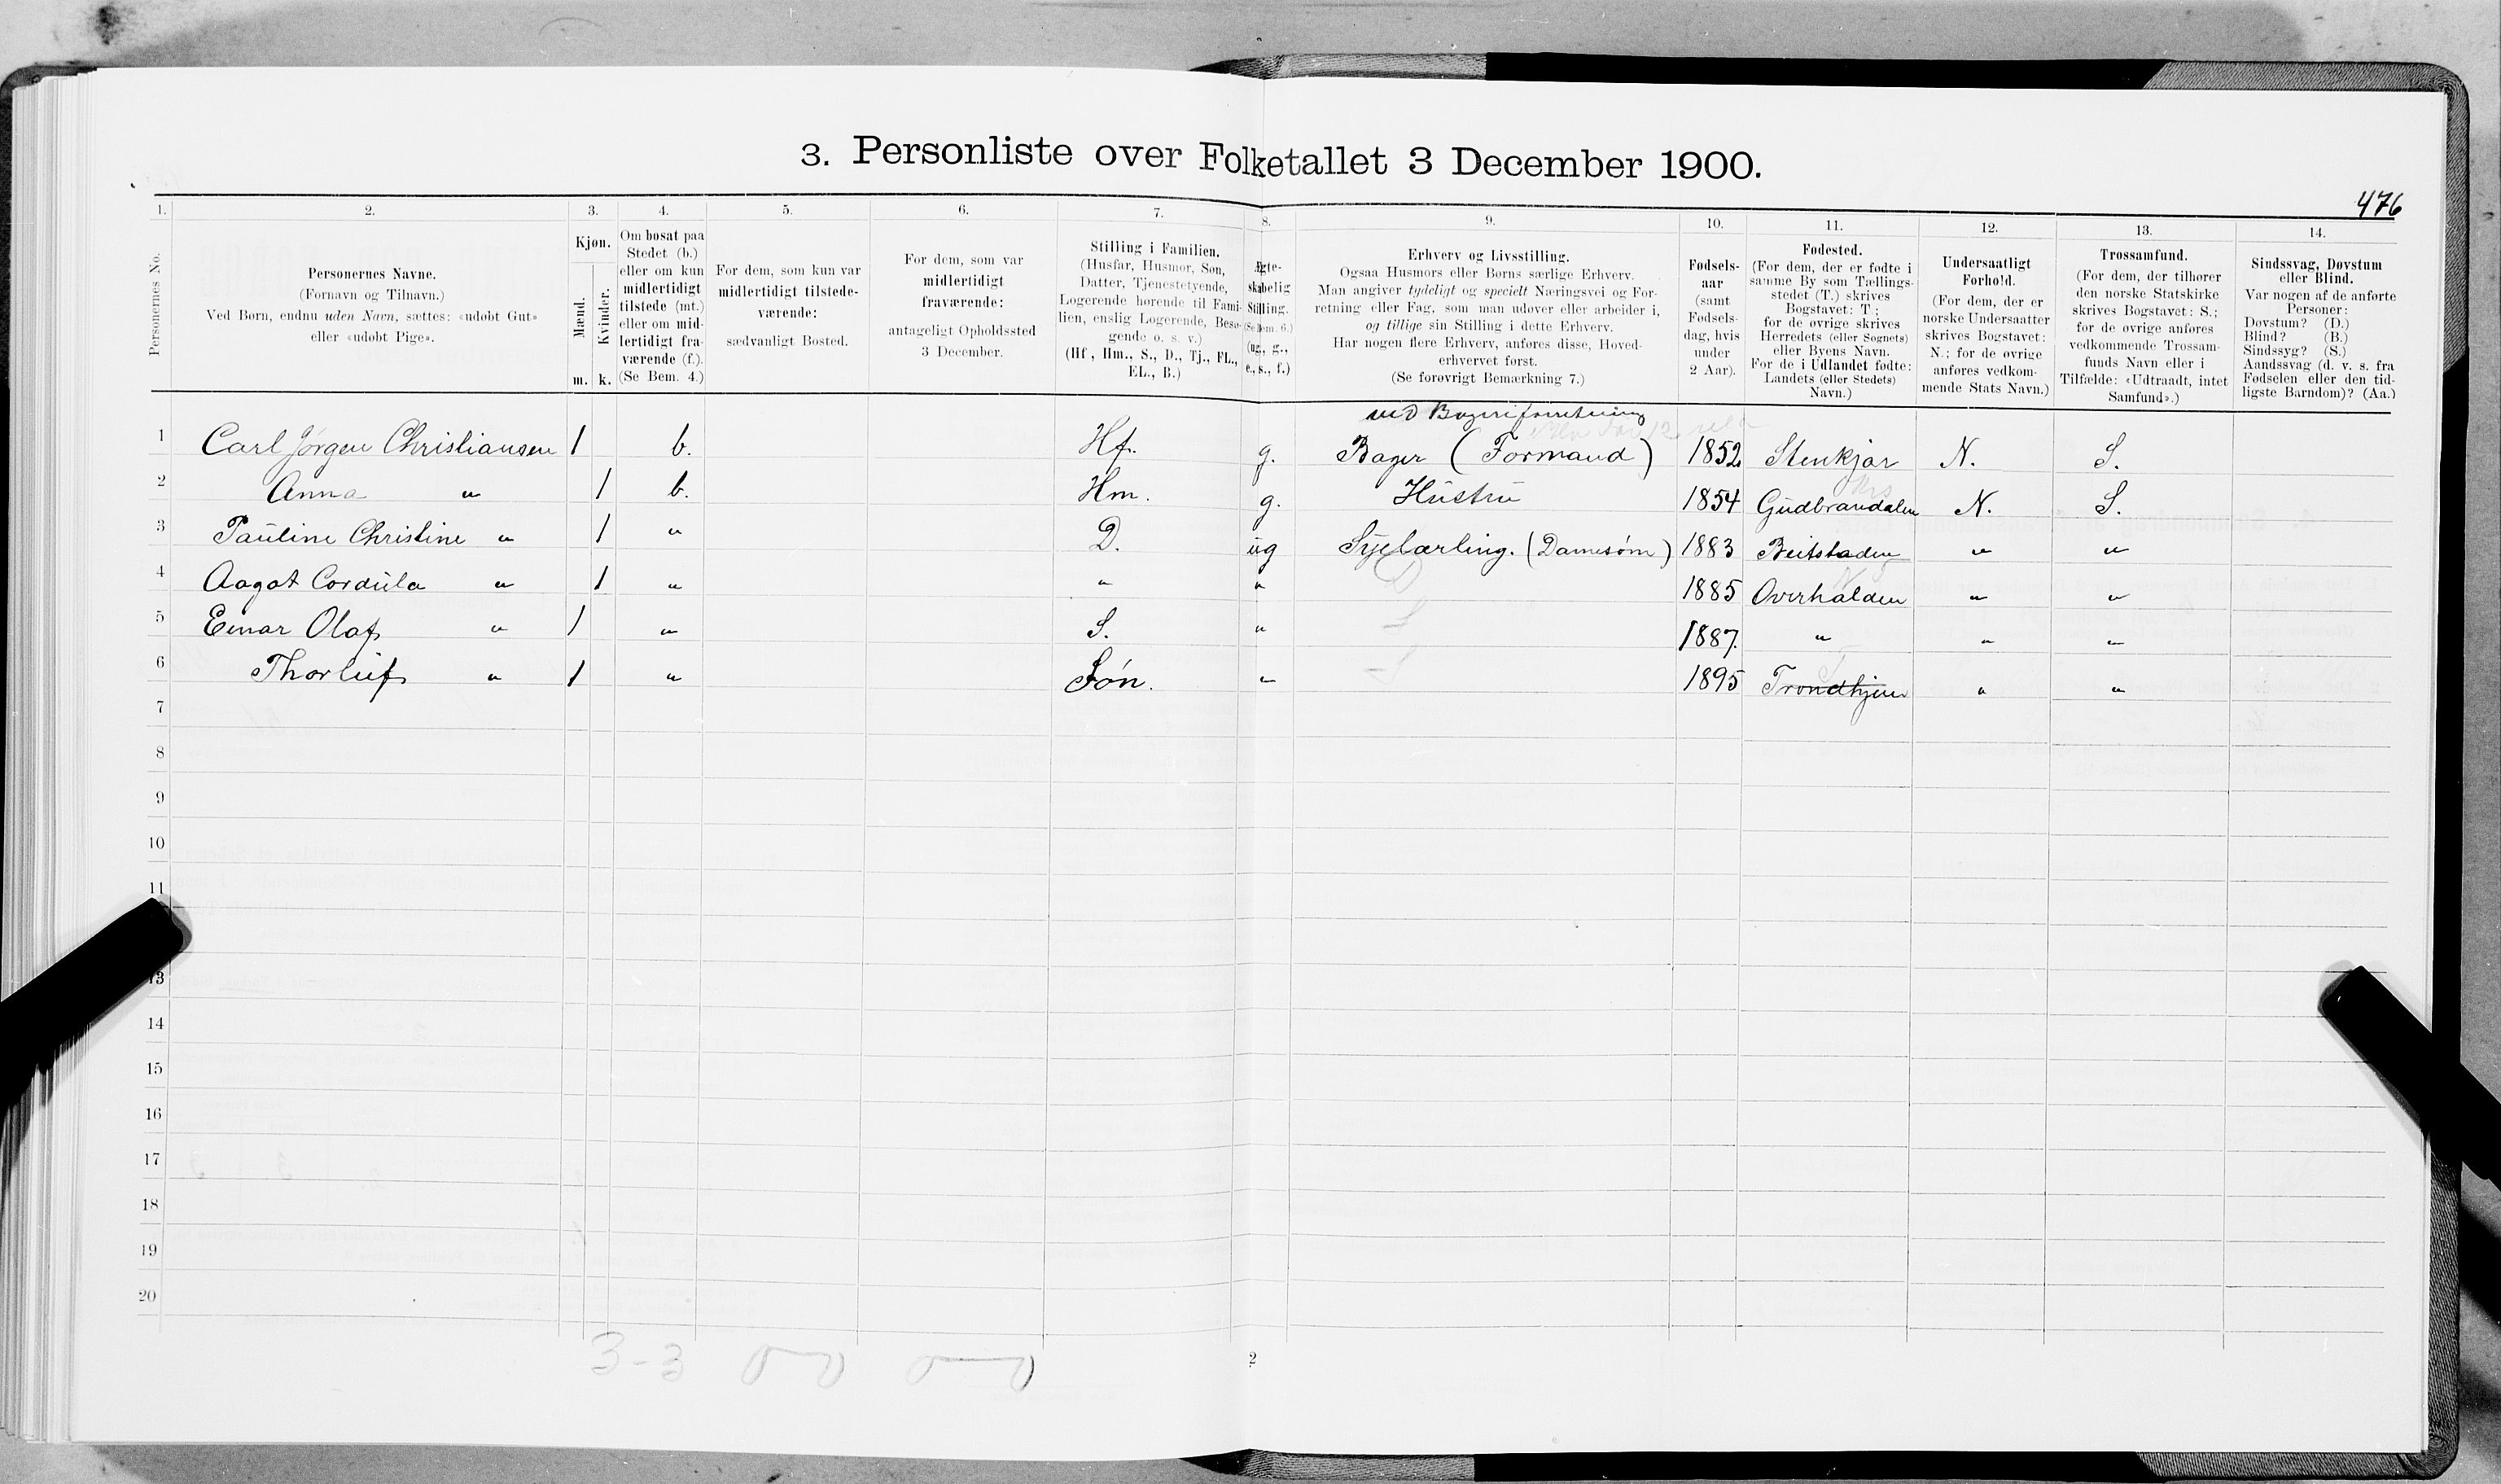 3. Personliste over Folketallet 3 December 1900.
476
1. 2. 3. 4. 5. 6. 7. 8. 9. 10. 11. 12. 13. 14.
Personernes No.
Personernes Navne.
(Fornavn og Tilnavn.)
Ved Børn, endnu uden Navn, sættes: «udøbt Gut»
eller «udøbt Pige».
Kjøn.
Mænd.
Kvinder.
m. k.
Om bosat paa
Stedet (b.)
eller om kun
midlertidigt
tilstede (mt.)
eller om mid-
lertidigt fra-
værende (f.).
(Se Bem. 4.)
For dem, som kun var
midlertidigt tilstede-
værende:
sædvanligt Bosted.
For dem, som var
midlertidigt
fraværende:
antageligt Opholdssted
3 December.
Stilling i Familien.
(Husfar, Husmor, Søn,
Datter, Tjenestetyende,
Logerende hørende til Fami-
lien, enslig Logerende, Besø-
gende o. s. v.)
(Hf., Hm., S., D., Tj., FL.,
EL., B.)
Ægte-
skabelig
Stilling.
(Se Bem. 6.)
(ug., g.,
e., s., f.)
Erhverv og Livsstilling.
Ogsaa Husmors eller Børns særlige Erhverv.
Man angiver tydeligt og specielt Næringsvei og For-
retning eller Fag, som man udøver eller arbeider i,
og tillige sin Stilling i dette Erhverv.
Har nogen flere Erhverv, anføres disse, Hoved-
erhvervet først.
(Se forøvrigt Bemærkning 7.)
Fødsels-
aar
(samt
Fødsels-
dag, hvis
under
2 Aar).
Fødested.
(For dem, der er fødte i
samme By som Tællings-
stedet (T.) skrives
Bogstavet: T.;
for de øvrige skrives
Herredets (eller Sognets)
eller Byens Navn.
For de i Udlandet fødte:
Landets (eller Stedets)
Navn.)
Undersaatligt
Forhold.
(For dem, der er
norske Undersaatter
skrives Bogstavet:
N.; for de øvrige
anføres vedkom-
mende Stats Navn.)
Trossamfund.
(For dem, der tilhører
den norske Statskirke
skrives Bogstavet: S.;
for de øvrige anføres
vedkommende Trossam-
funds Navn eller i
Tilfælde: «Udtraadt, intet
Samfund».)
Sindssvag, Døvstum
eller Blind.
Var nogen af de anførte
Personer:
Døvstum? (D.)
Blind? (B.)
Sindssyg? (S.)
Aandssvag (d. v. s. fra
Fødselen eller den tid-
ligste Barndom)? (Aa.)
ved Bageriforretning
1 Carl Jörgen Christiansen 1 b. Hf. g. Bager (Formand) 1852 Stenkjær N. S.
2 Anna " 1 b. Hm. g. Hustru 1854 Gudbrandalen N. S.
3 Pauline Christine " 1 " D. ug Syelærling. (Damesøm) 1883 Beitstaden " "
4 Aagot Cordula " 1 " " " 1885 Overhalden " "
5 Einar Olaf " 1 " S. " 1887. " " "
6 Thorleif " 1 " Søn. " 1895 Trondhjem " "
7
8
9
10
11
13
14
15
16
17
18
19
20
3-3
2